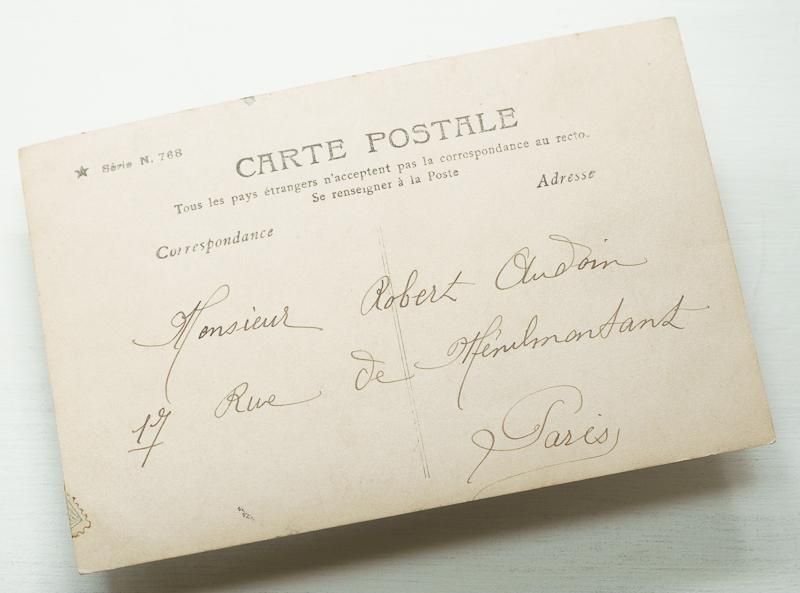 ★ Série N. 768
CARTE POSTALE
Tous les pays étrangers n'acceptent pas la correspondance au recto.
Se renseigner à la Poste
Correspondance
Adresse
Monsieur Robert Audoin
17 Rue de Ménilmontant
Paris